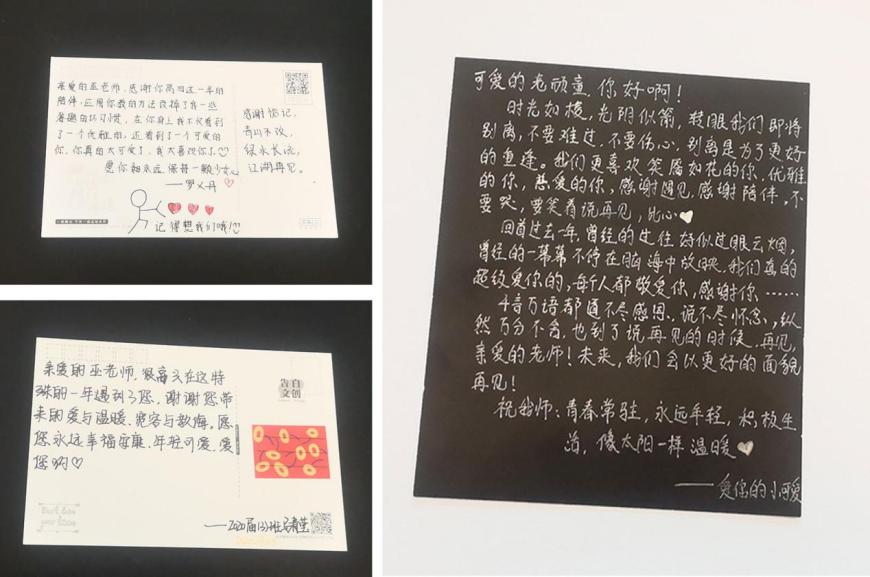 亲爱的巫老师,感谢你高三这一年的
陪伴,应用你教的方法改掉了我一些
答题的坏习惯,在你身上我不仅看到
了一个优雅的,还看到了一个可爱的
你,你真的太可爱了,我太喜欢你了
愿你能永远保持一颗少女心
——罗义丹
记得想我们哦!
感谢惦记,
青山不改,
绿水长流,
江湖再见。
亲爱的巫老师,很高兴在这特
殊的一年遇到了您,谢谢您带
来的爱与温暖、宽容与教悔。愿
您永远幸福安康、年轻可爱。爱
您哟♡
告白
文创
——2020届(3)班
可爱的老顽童,你好啊!
时光如梭,光阴似箭,转眼我们即将
别离,不要难过,不要伤心,别离是为了更好
的重逢。我们更喜欢笑靥如花的你,优雅
的你,慈爱的你,感谢遇见,感谢陪伴。不
要哭,要笑着说再见,比心♡
回首过去一年,曾经的过往好似过眼云烟,
曾经的一幕幕不停在脑海中放映,我们真的
超级爱你的,每个人都敬爱你,感谢你……
千言万语都道不尽感恩,说不尽怀念,纵
然万分不舍,也到了说再见的时候,再见,
亲爱的老师!未来,我们会以更好的面貌
再见!
祝我师:青春常驻,永远年轻,积极生
活,像太阳一样温暖♡
——爱你的小可爱